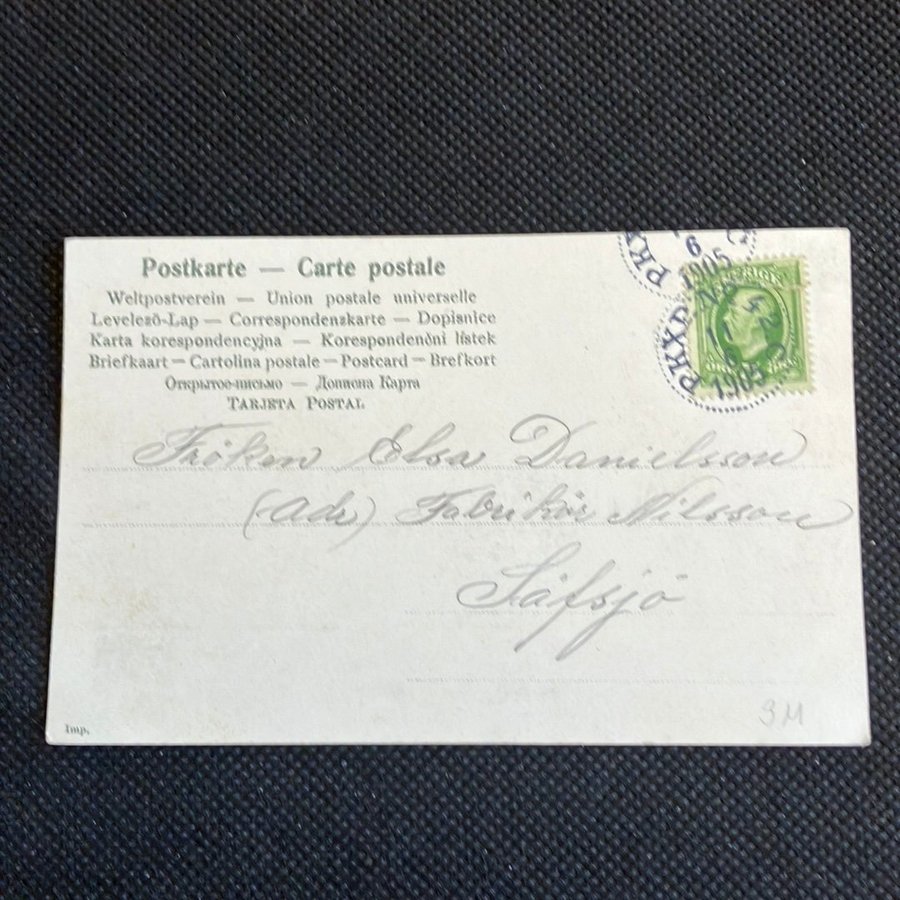 Postkarte — Carte postale
Weltpostverein — Union postale universelle
Levelező-Lap — Correspondenzkarte — Dopisnice
Karta korespondencyjna — Korespondenční lístek
Briefkaart — Cartolina postale — Postcard — Brefkort
Открытое-письмо — Дописна Карта
TARJETA POSTAL
PKXP
6
1905
SVERIGE
PKXP No 42
1905
Fröken Elsa Danielsson
(Adr) Fabrikör Nilsson
Säfsjö
Imp.